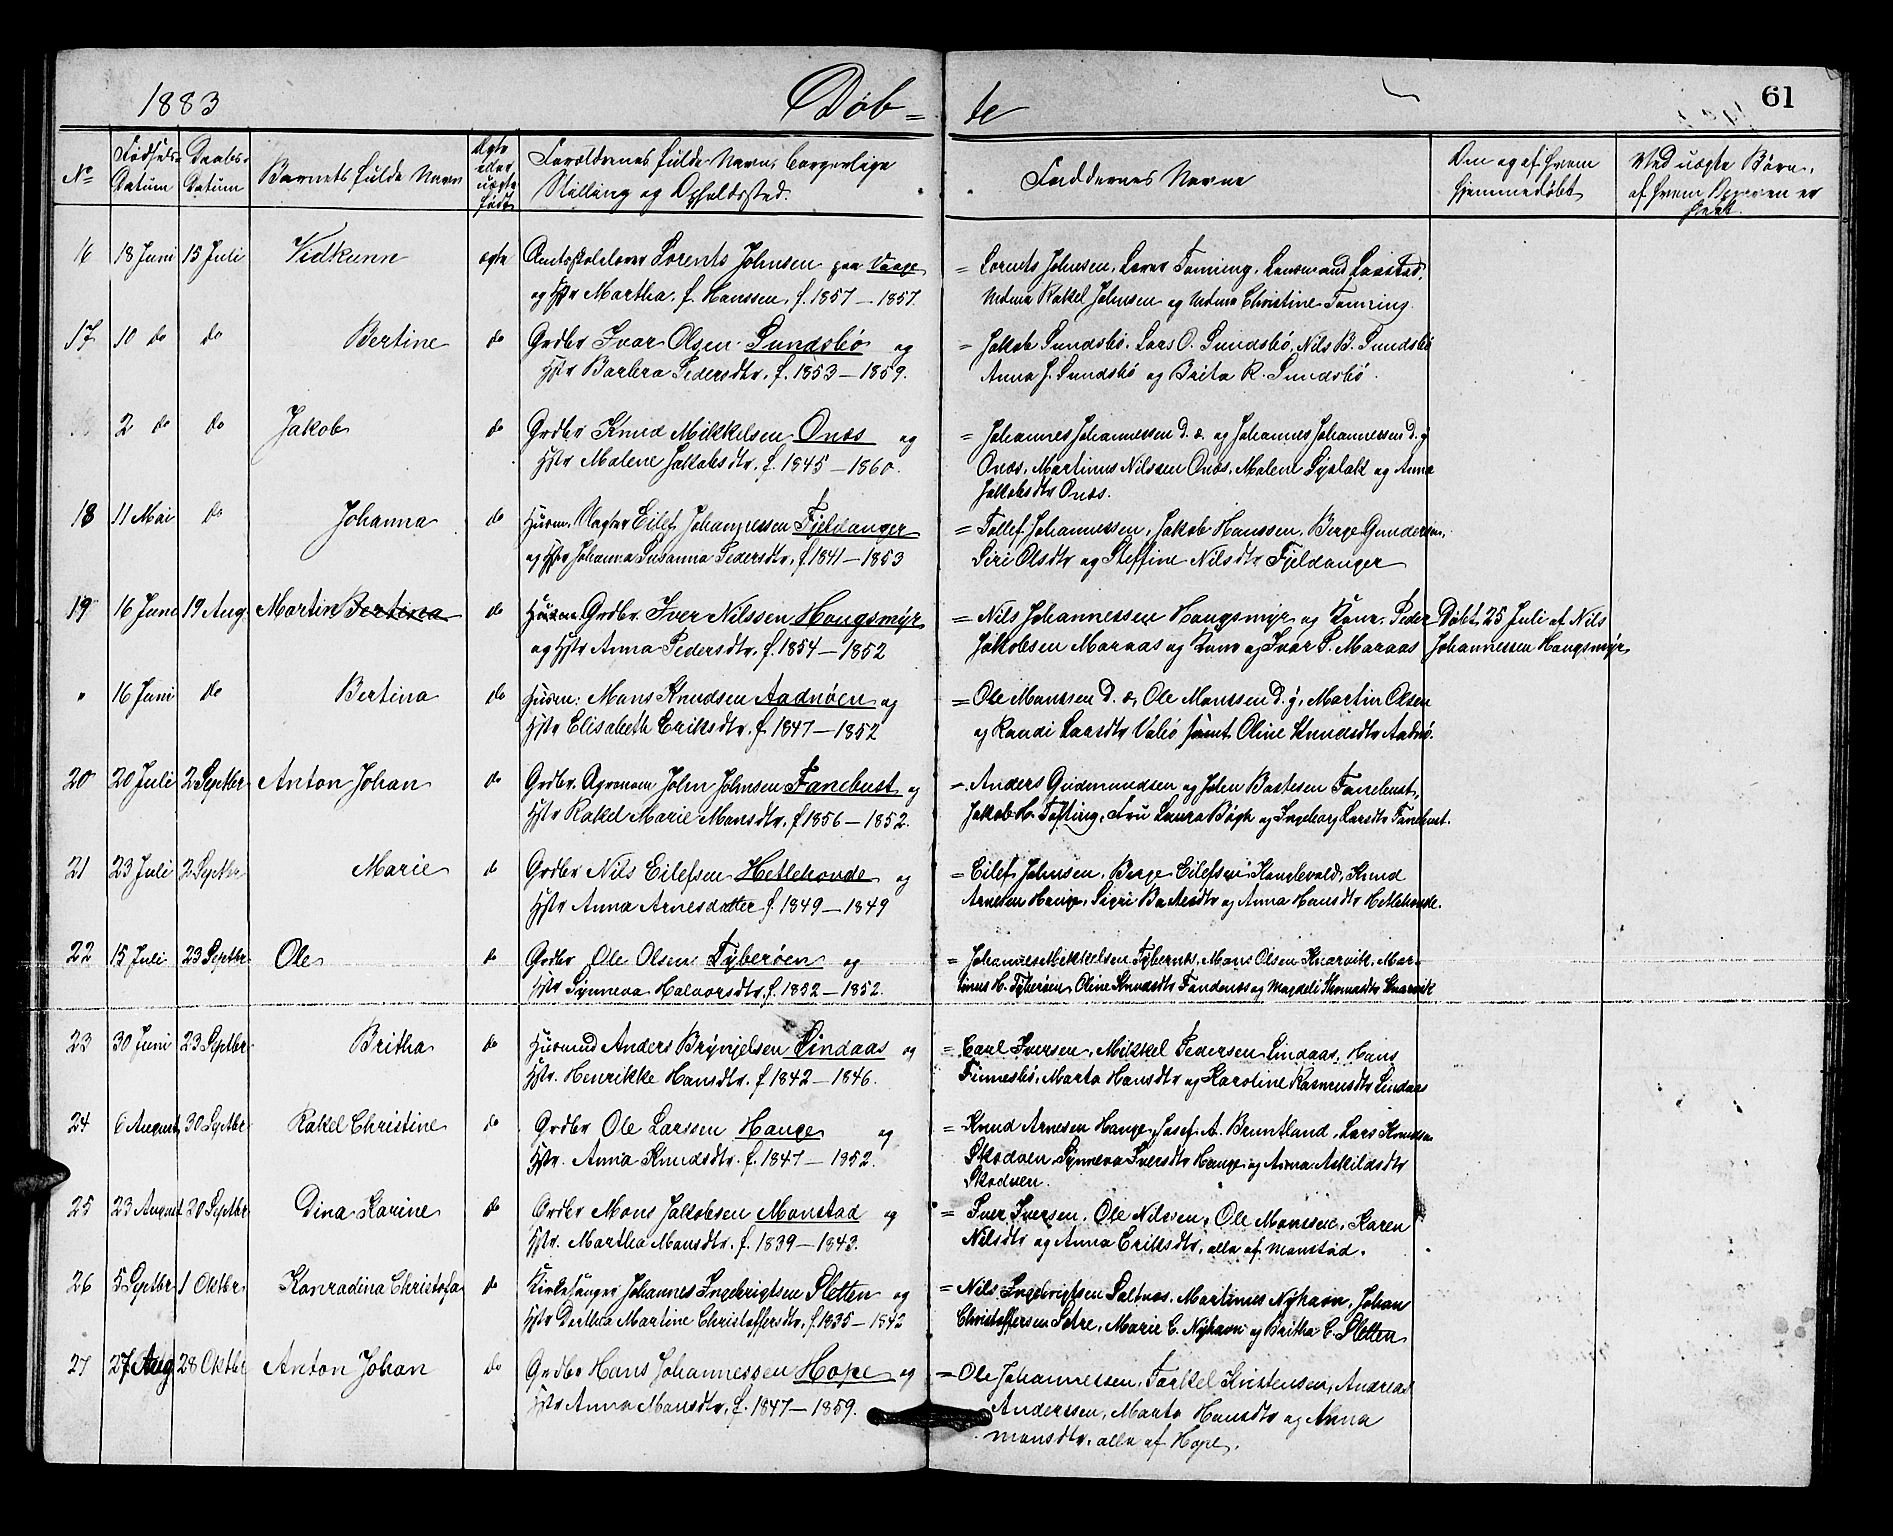 1883 Døb= te 61
No Fødsels- Datum Daabs- Datum Barnets fulde Navn Ægte eder uægte født Forældrenes fulde Navn, borgerlige Stilling og Opholdssted. Faddernes Navne Om og af hvem hjemmedøbt Ved uægte Børn, af hvem Barnen er
16 18 Juni 15 Juli Vidkunn ægte Amtsskolelærer Lorents Johnsen paa Vaage = Lornts Johnsen, Lærer Tanning, Lensmand Laastad,
og Hstr Martha, f. Hanssen, f. 1857 – 1857. Mdma Rakel Johnsen og Mdme Christine Tanning.
17 10 do do Bertine do Grdbr Ivar Olsen Sundsbø og = Jakob Sundsbø, Lars O. Sundsbø, Nils B. Sundsbø
Hstr Barbra Pedersdtr, f. 1853 – 1859. Anna J. Sundsbø og Brita R. Sundsbø.
2 do do Jakob do Grdbr Knud Mikkelsen Onæs og = Johannes Johannessen d. æ. og Johannes Johannessen d. y
Hstr Malene Jakobsdtr, f. 1845 – 1860. Onæs, Martinus Nilssen Onæs, Malene og Anna
Jakobsdtr Onæs.
18 11 Mai do Johanna do Husm. Eilef Johannessen Fjeldanger = Tollef Johannessen, Jakob Hanssen, Berge Gundersen,
og Hstr Johanna Susanna Pedersdtr, f. 1841 – 1853 Siri Olsdtr og Steffine Nilsdtr Fjeldanger
19 16 Juni 19 Aug. Martin Bertina do Husm. Grdbr. Iver Nilssen Hougsmyr = Nils Johannessen Hougsmyr og Kone, Peder Døbt 25 Juli af Nils
og Hstr Anna Pedersdtr, f. 1854 – 1852 Jakobsen Maraas og Kone og Ivar P. Maraas Johannessen Hougsmyr
" 16 Juni do Bertina do Husm: Mons Knudsen Aadnøen og = Ole Monssen d. æ, Ole Monssen d. y, Martin Olsen
Hstr Elisabeth Eriksdtr. f. 1847 – 1852 og Randi Larsdtr Vabø samt Oline Knudsdtr Aadnø.
20 20 Juli 2 Septbr Anton Johan do Grdbr. Agronom John Johnsen Fanebust og =. Anders Gudmundsen og John Bastesen Fanebust,
Hstr Rakel Marie Monsdtr, f. 1856 – 1852. Jakob H. Tofting, Fru Laura Bøgh og Ingeborg Larsdtr Fanebust.
21 23 Juli 2 Septbr Marie do Grdbr Nils Eilefsen Hetlehovde og = Eilef Johnsen, Berge Eilefsen Kanglevold, Knud
Hstr Anna Arnesdatter f. 1849 – 1849 Arnesen Hauge, Sigri Bastesdtr og Anna Hansdtr Hetlehovde.
22 15 Juli 23 Septbr Ole do Grdbr Ole Olsen Tyberøen og = Johannes Mikkelsen Tybernæs, Mons Olsen Knarvik, Mar-
Hstr Synneva Halvorsdtr, f. 1852 – 1852. tinus H. Tyberøen, Oline Knudsdtr Fandnæs og Magdeli Thomasdtr Knarvik
23 30 Juni 23 Septbr Britha do Husmd Anders Brynjelsen Lindaas og = Carl Iversen, Mikkel Pedersen Lindaas, Hans
Hstr. Henrikke Hansdtr. f. 1842 – 1846. Finnesbø, Marta Hansdtr og Karoline Rasmusdtr Lindaas
24 6 August 30 Septbr Rakel Christine do Grdbr Ole Larssen Hauge og = Knud Arnesen Hauge, Josef A. Bruntland, Lars Knudsen
Hstr. Anna Knudsdtr. f. 1847 – 1852. Skodven, Synneva Iversdtr Hauge og Anna Askildsdtr
Skodven.
25 23 August 30 Septbr Dina Karine do Grdbr Mons Jakobsen Monstad og = Iver Iversen, Ole Nilssen, Ole Monssen, Karen
Hstr. Martha Monsdtr, f. 1839 – 1843. Nilsdtr og Anna Eriksdtr, alle af Monstad.
26 5 Septbr 1 Oktbr. Konradina Christofa do Kirkesanger Johannes Ingebrigtsen Sletten og = Nils Ingebrigtsen Saltnæs, Martines Nyhavn, Johan
Hstr Dorthea Martine Christoffersdtr, f. 1835 – 1842 Christoffersen Sætre, Marie C. Nyhavn og Britha C. Sletten
27 27 Aug 28 Oktbr Anton Johan do Grdbr Hans Johannessen Hope og = Ole Johannessen, Torkel Kristensen, Andreas
Hstr Anna Monsdtr, f. 1847 – 1859. Anderssen, Marta Hansdtr og Anna
Monsdtr, alle af Hope.